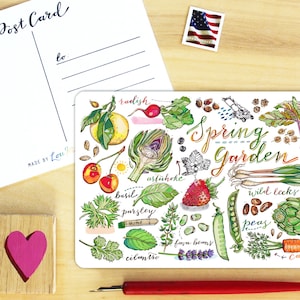 Post Card
to
MADE BY
radish
Spring
Garden
artichoke
wild leeks
basil
parsley
MINT
peas
fava beans
cilantro